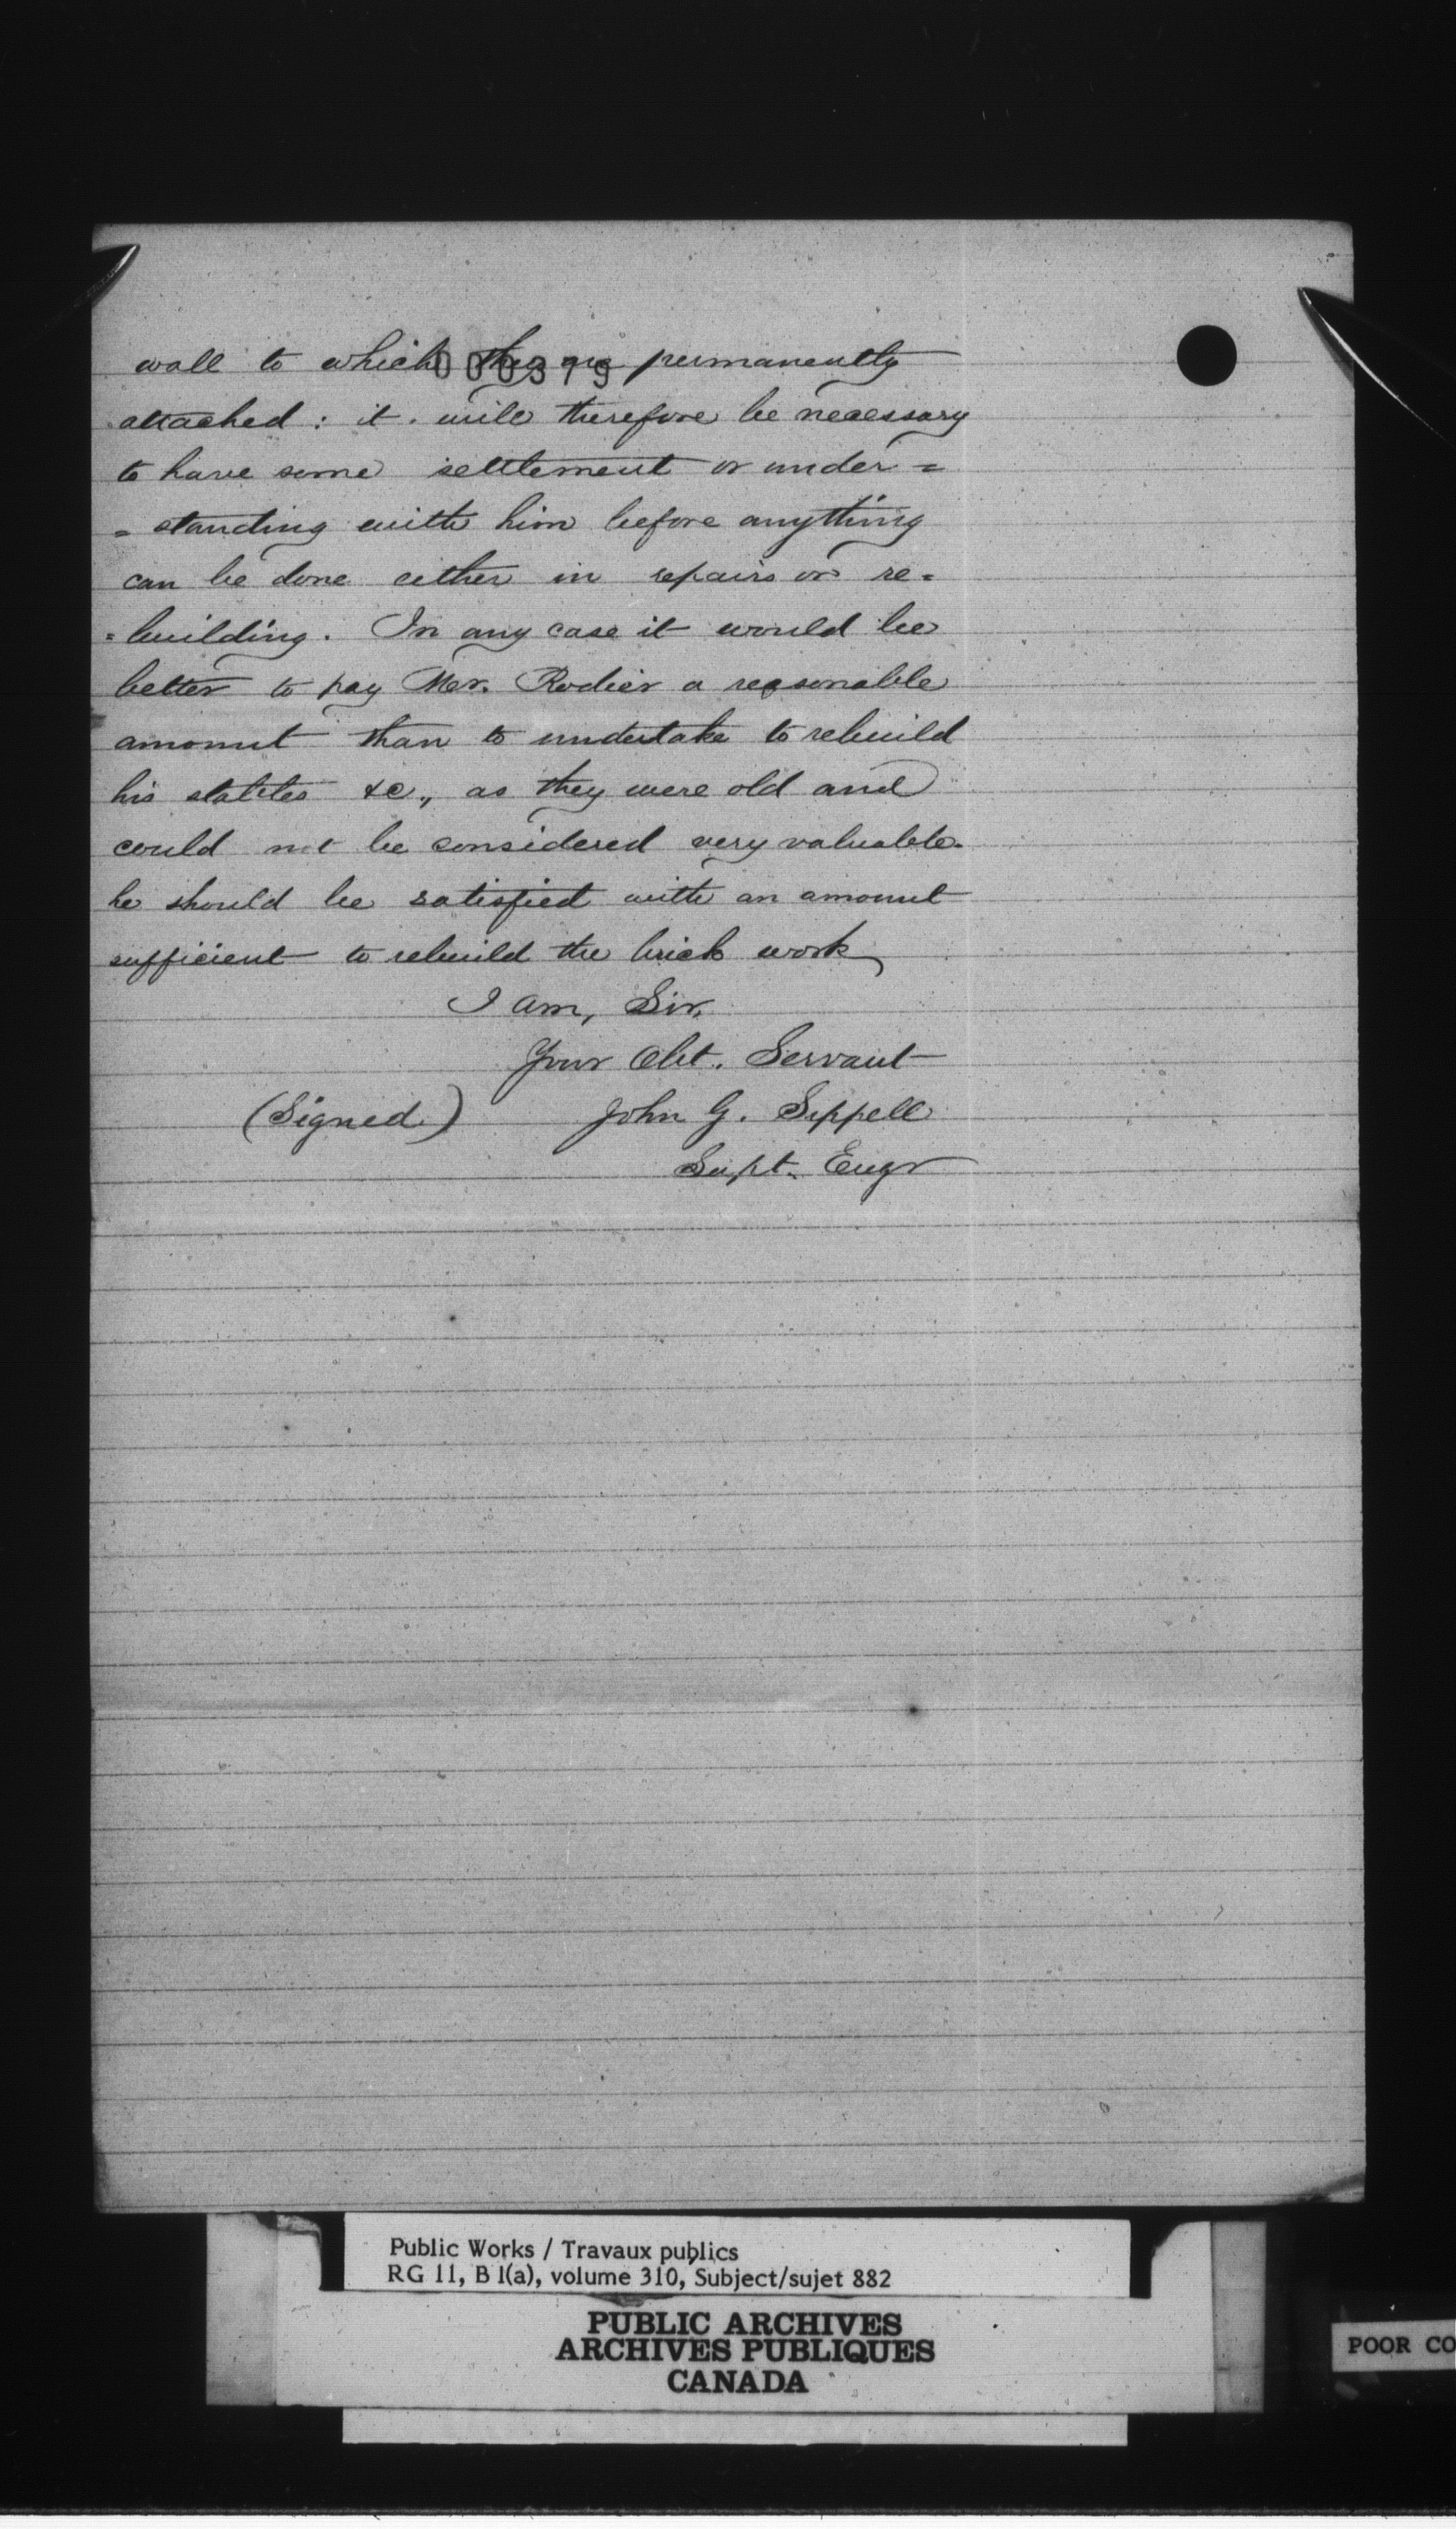 wall to which they are permanently
000379
attached : it will therefore be necessary
to have some settlement or under =
= standing with him before anything
can be done either in repairs or re =
= building. In any case it would be
better to pay Mr. Rodier a reasonable
amount than to undertake to rebuild
his stables &c., as they were old and
could not be considered very valuable.
he should be satisfied with an amount
sufficient to rebuild the brick work
I am, Sir,
Your Obt. Servant
(Signed) John G. Sippell
Supt. Engr
Public Works / Travaux publics
RG 11, B 1(a), volume 310, Subject/sujet 882
PUBLIC ARCHIVES
ARCHIVES PUBLIQUES
CANADA
POOR CO